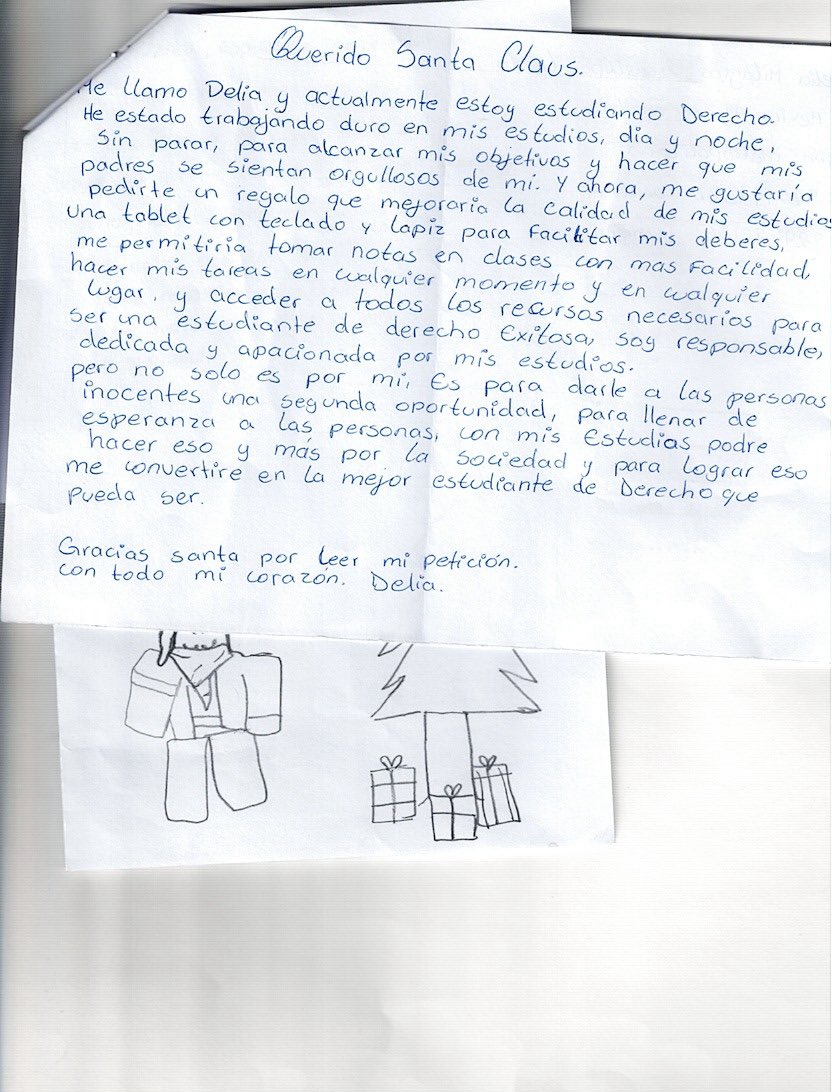 Querido Santa Claus.
Me llamo Delia y actualmente estoy estudiando Derecho.
He estado trabajando duro en mis estudios, dia y noche,
sin parar, para alcanzar mis objetivos y hacer que mis
padres se sientan orgullosos de mi. Y ahora, me gustaría
pedirte un regalo que mejoraria la calidad de mis estudios
una tablet con teclado y lapiz para facilitar mis deberes,
me permitiria tomar notas en clases con mas facilidad,
hacer mis tareas en cualquier momento y en cualquier
lugar, y acceder a todos los recursos necesarios para
ser una estudiante de derecho exitosa, soy responsable,
dedicada y apacionada por mis estudios.
pero no solo es por mi, Es para darle a las personas
inocentes una segunda oportunidad, para llenar de
esperanza a las personas, con mis Estudias podre
hacer eso y más por la sociedad y para lograr eso
me convertire en la mejor estudiante de Derecho que
pueda ser.
Gracias santa por leer mi petición.
con todo mi corazón. Delia.